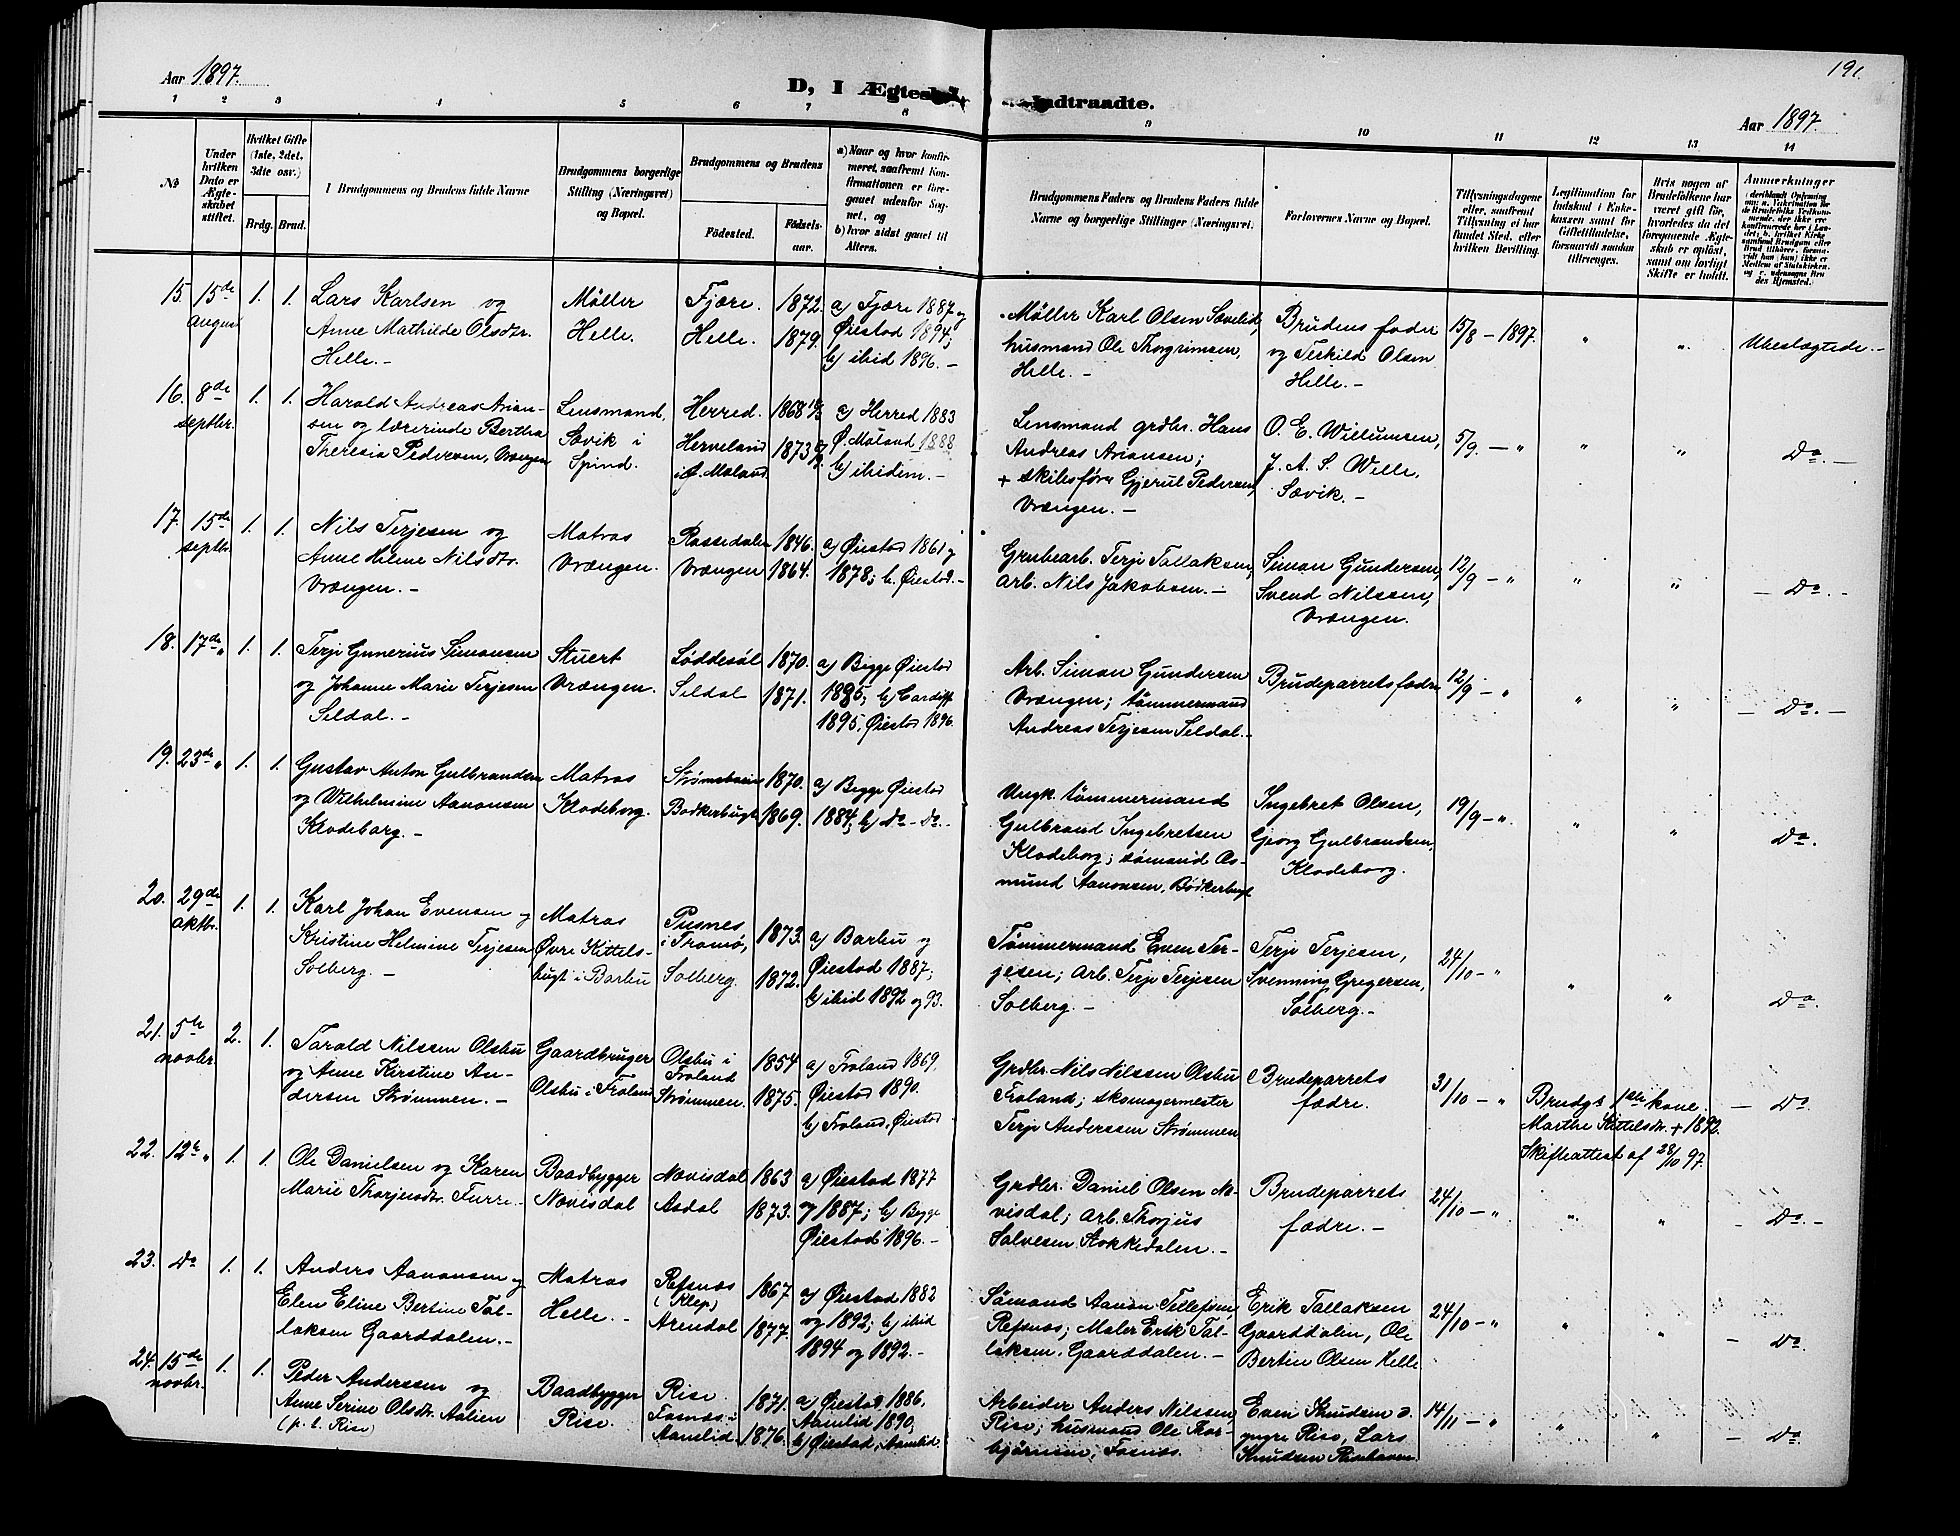 191.
Aar 1897.
D, I Ægtes
indtraadte.
Aar 1897.
1 2 3 4 5 6 7 8 9 10 11 12 13 14
No
Under hvilken Dato er Ægteskabet stiftet.
Hvilket Gifte (1ste, 2det, 3die osv.)
Brdg. Brud.
1 Brudgommens og Brudens fulde Navne
Brudgommens borgerlige Stilling (Næringsvei) og Bopæl.
Brudgommens og Brudens
Födested.
Födselsaar.
a) Naar og hvor konfirmeret, saafremt Konfirmationen er foregaaet udenfor Sognet, og
b) hvor sidst gaaet til Alters.
Brudgommens Faders og Brudens Faders fulde Navne og borgerlige Stillinger (Næringsvei.
Forlovernes Navne og Bopæl.
Tillysningsdagene eller, saafremt Tillysning ei har fundet Sted, efter hvilken Bevilling.
Legitimation for Indskud i Enkekassen samt for Giftetilladelse, forsaavidt saadan tiltrænges.
Hvis nogen af Brudefolkene har været gift för, hvorledes da det foregaaende Ægteskab er oplöst, samt om lovligt Skifte er holdt.
Anmerkninger
15. 15de August 1. 1. Lars Karlsen og Anne Mathilde Olsdtr. Helle.-
Møller Helle.
Fjære. 1872. Helle. 1879.
a) Fjære 1887 og Øiestad 1894; b) ibid 1896.-
Møller Karl Olsen Sævelid, husmand Ole Thorgrimsen, Helle.-
Brudens fader og Terkild Olsen Helle.-
15/8 - 1897. " " Ubeslægtede.-
16. 8de septbr. 1. 1. Harald Andreas Ariansen og lærerinde Bertha Theresia Pedersen, Vrængen
Lensmand, Sævik i Spind.
Herred. 1868 Herveland i Ø. Moland. 1873
a) Herred 1883 Ø. Moland 1888 b) ibidem.-
Lensmand grdbr. Hans Andreas Ariansen; + skibsfører Gjerul Pedersen, Vrængen.-
O. E. Willumsen, J. A. S. Wille, Sævik.-
5/9. - " " " Do.-
17. 15de septbr. 1. 1. Nils Terjesen og Anne Helene Nilsdtr. Vrængen.-
Matros Vrængen.
Rossedalen 1846. Vrængen 1864.
a) Øiestad 1861 og 1878; b. Øiestad.-
Grubearb. Terje Tallaksen, arb. Nils Jakobsen.-
Simon Gundersen, Svend Nilssen, Vrængen.
12/9 - " " " - Do.-
18. 17de " 1. 1. Terje Gunerius Simonsen og Johanne Marie Terjesen Seldal.-
Stuert Vrængen.
Løddesøl 1870. Seldal 1871.
a) Begge Øiestad 1885; b) Cardiff 1895, Øiestad 1896.
Arb. Simon Gundersen Vrængen; tømmermand Andreas Terjesen Seldal.-
Brudeparrets fædre
12/9 - " " " - Do.-
19. 23de " 1. 1. Gustav Anton Gulbrandsen og Wilhelmine Aanonsen Klodeborg.-
Matros Klodeborg.
Strømsbuin 1870. Bodkerbugt 1869.
a) Begge Øiestad 1884; b) Do - Do.-
Ungk. tømmermand Gulbrand Ingebretsen Klodeborg; sømand Asmund Aanonsen, Bödkerbugt
Ingebret Olsen, Georg Gulbrandsen, Klodeborg.
19/9 - " " " Do.
20. 29de oktbr. 1. 1. Karl Johan Evensen og Kristine Helmine Terjesen Solberg.-
Matros Øvre Kittelsbugt i Barbu
Pusnes i Tromø, 1873. Solberg. 1872.
a) Barbu og Øiestad 1887; b) ibid 1892 og 93.
Tømmermand Even Terjesen; arb. Terje Terjesen Solberg.-
Terje Terjesen, Svenning Gregersen, Solberg.-
24/10 - " " " Do.
21. 5te novbr. 2. 1. Tarald Nilssen Olsbu og Anne Kirstine Andersen Strømmen.-
Gaardbruger Olsbu i Froland
Olsbu i Froland 1854 Strømmen. 1875.
a) Froland 1869, Øiestad 1890. b) Froland, Øiestad
Grdbr. Nils Nilssen Olsbu Froland; skomagermester Terje Anderssen Strømmen
Brudeparrets fædre.
31/10 - " Brudgs 1ste kone Marthe Kittelsdtr. + 1892. Skifteattest af 28/10 97. - Do
22. 12te " 1. 1. Ole Danielsen og Karen Marie Thorjusdtr. Furre.-
Baadbygger Nævisdal
Nævisdal 1863 Asdal 1873.
a) Øiestad 1877 og 1887; b) Begge Øiestad 1896.-
Grdbr. Daniel Olsen Nævisdal; arb. Thorjus Salvesen Stokkedalen.-
Brudeparrets fædre.-
24/10 - " " " - Do.-
23. Do 1. 1. Anders Aanonsen og Elen Eline Bertine Tallaksen Gaarddalen.-
Matros Helle.-
Refsnæs (Klep) 1867 Arendal 1877.
a) Øiestad 1882 og 1892; b) ibid 1894 og 1892.-
Sømand Aanon Tellefsen, Refsnæs; Maler Erik Tallaksen, Gaarddalen.-
Erik Tallaksen Gaarddalen, Ole Bertin Olsen Helle
24/10 - " " " - Do.
24. 15de novbr. 1. 1. Peder Anderssen og Anne Serine Olsdtr. Aalien (p. t. Rise)
Baadbygger Rise.
Rise. 1871. Fosnæs i Aamlid 1876.
a) Øiestad 1886, Aamlid 1890, b) Øiestad, Aamlid
Arbeider Anders Nilssen, Rise; husmand Ole Thorbjørnsen, Fosnæs.
Even Knudsen d. yngre Rise, Lars Knudsen Risehaven
14/11 - " " " - Do.